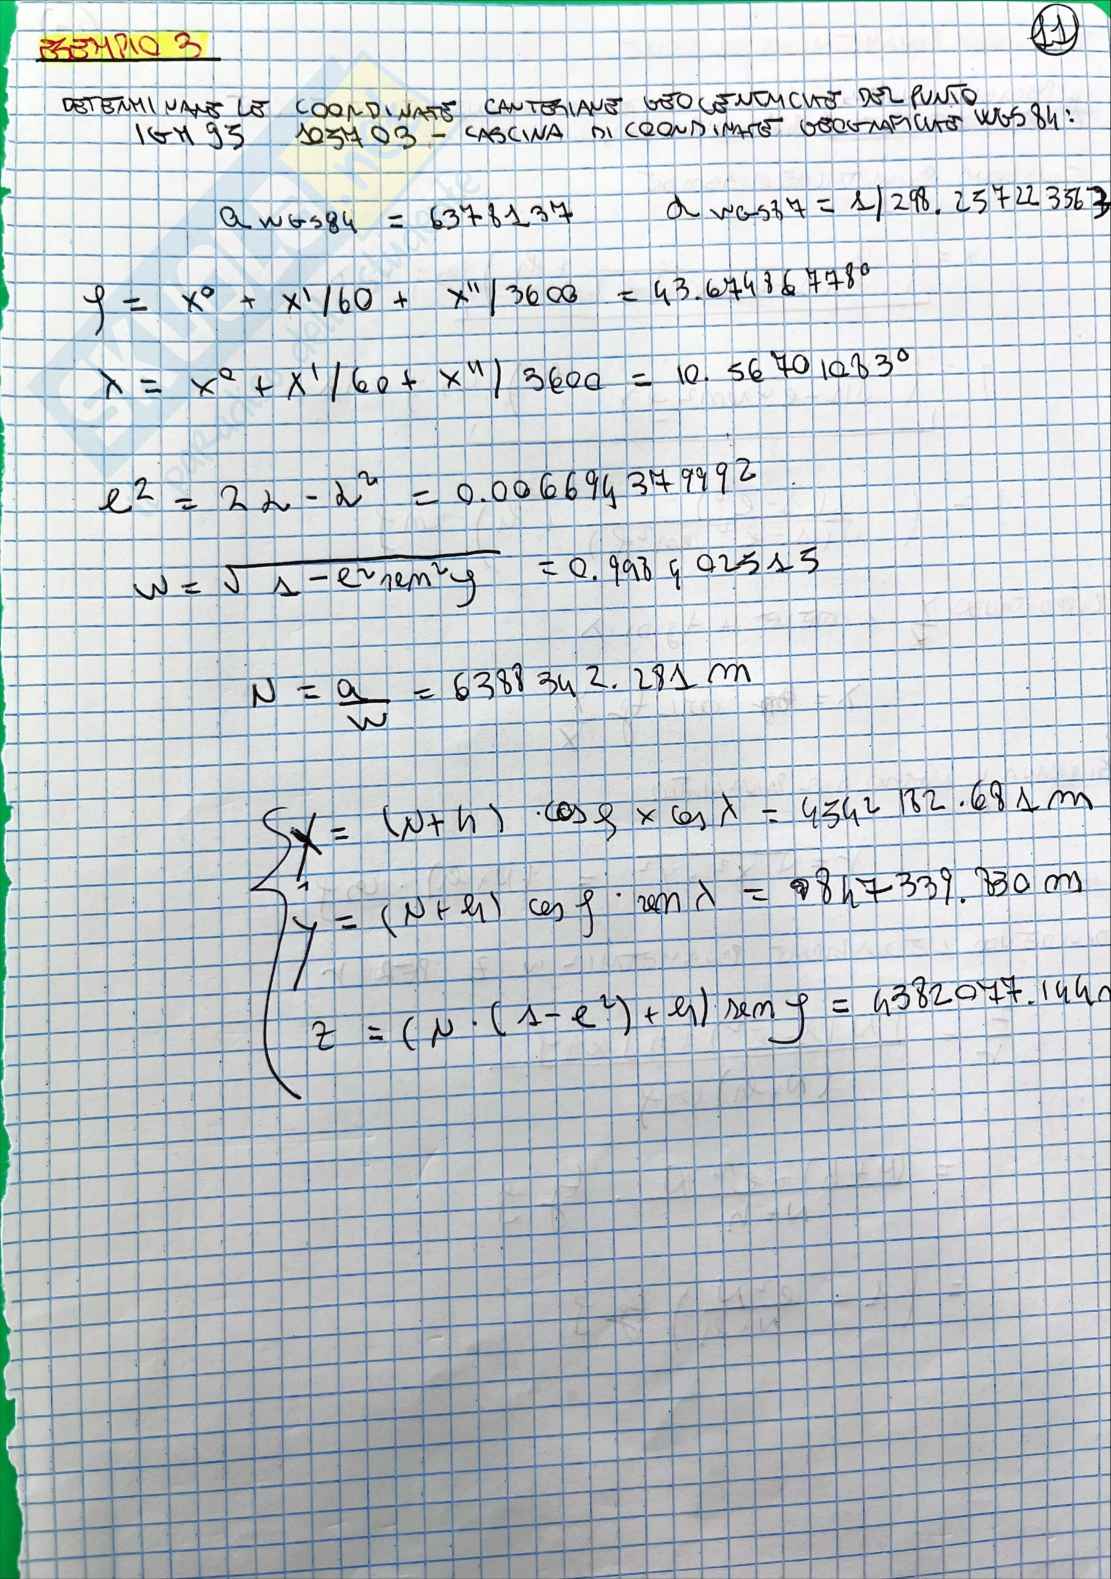 11
ESEMPIO 3
DETERMINARE LE COORDINATE CARTESIANE GEOCENTRICHE DEL PUNTO
IGM 95 103703 - CASCINA DI COORDINATE GEOGRAFICHE WGS84:
a WGS84 = 6378137 α WGS87 = 1/298.257223563
φ = x° + x'/60 + x"/3600 = 43.674867778°
λ = x° + x'/60 + x"/3600 = 10.56701083°
e² = 2α - α² = 0.006694379992
W = √1-e²sen²φ = 0.998402515
N = a/W = 6388342.281 m
X = (N+h) · cosφ x cosλ = 4542182.681 m
Y = (N+h) cosφ · senλ = 847339.830 m
Z = (N·(1-e²)+h) senφ = 4382077.144m